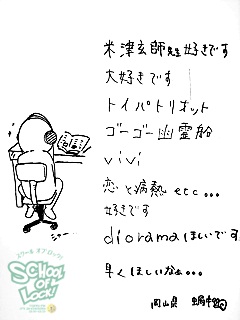 米津玄師先生好きです
大好きです
トイパトリオット
ゴーゴー幽霊船
vivi
恋と病熱 etc...
好きです
dioramaほしいです
早くほしいなぁ...
岡山県
シャー
スクール オブ ロック!
SCHOOL
OF
LOCK!